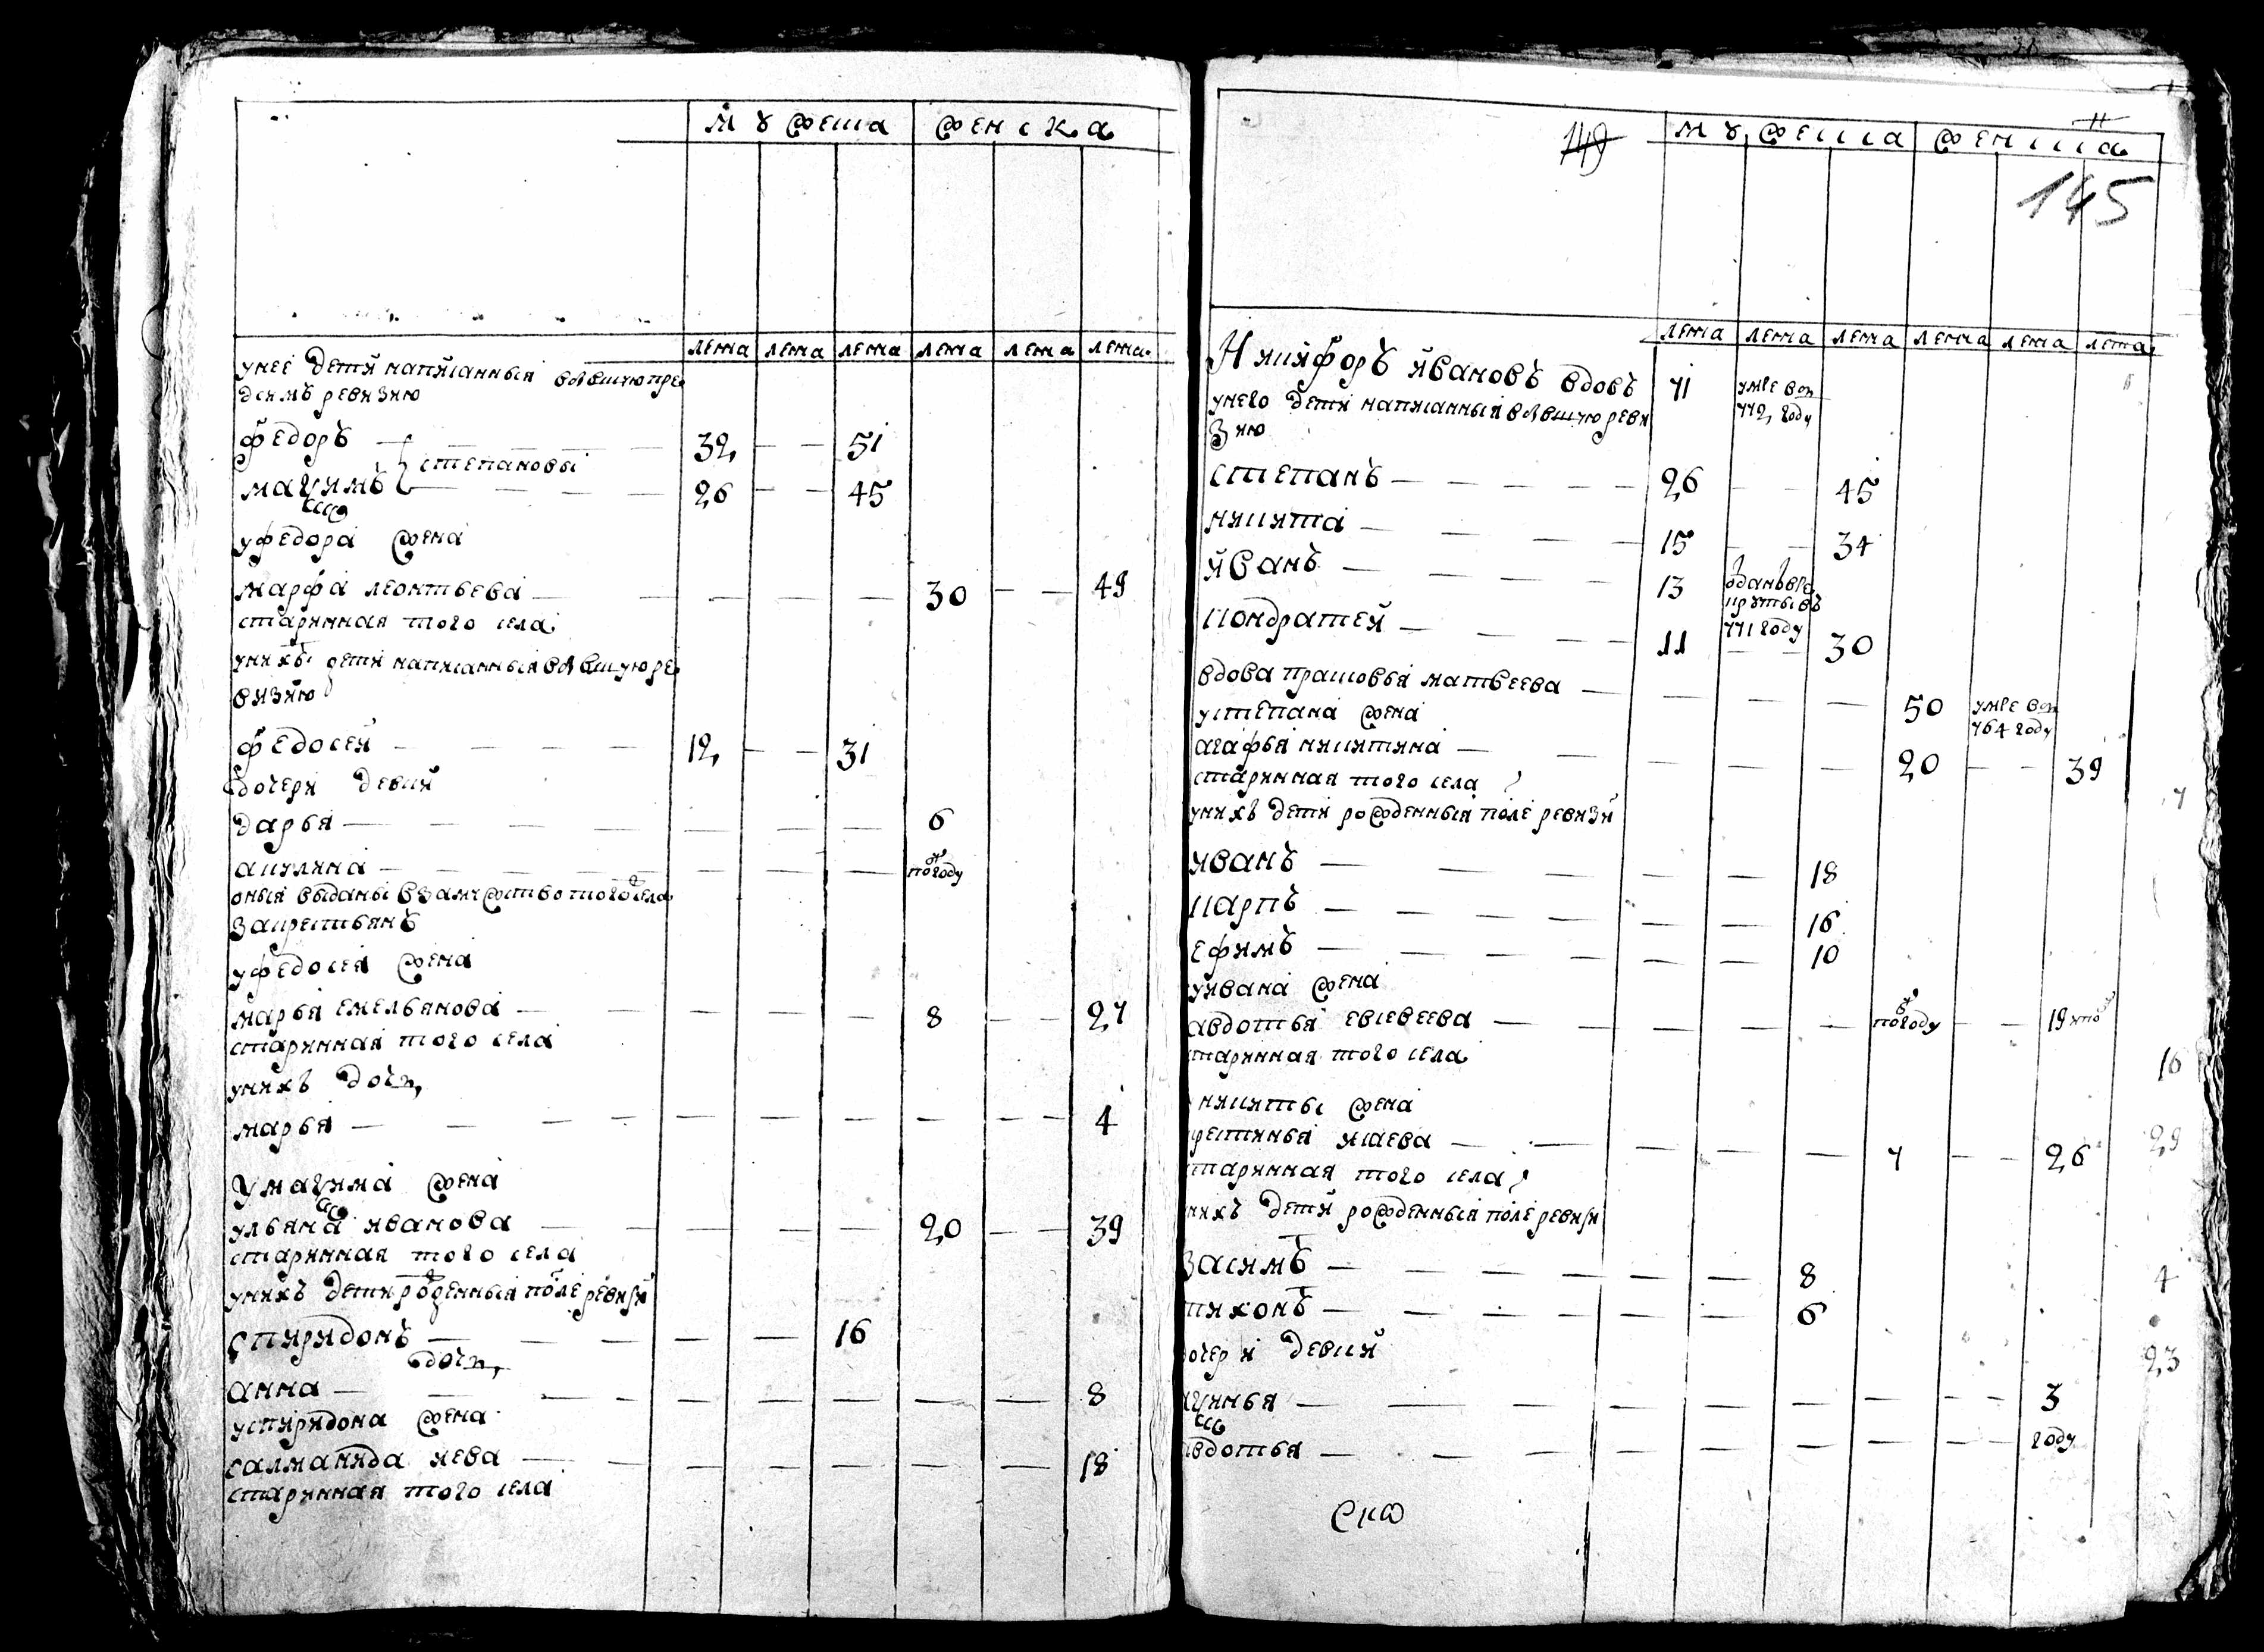 мужеска женска
лета лета лета лета лета лета
унее дети написанныя вбывшую пре
дсимъ ревизию
федоръ — 32 — — 51
степановы
маѯимъ — 26 — — 45
уфедора жена
марфа леонтьева — 30 — — 49
старинная того села
унихъ дети написанныя вбывшую ре
визию
федосей — 12 — — 31
дочери девки
дарья — 6
акулина — полгоду
оныя выданы взамужство того села
закрестьянъ
уфедосея жена
марья емельянова — 8 — — 27
старинная того села
унихъ дочь
марья — 4
умаѯима жена
ульяна иванова — 20 — — 39
старинная того села
унихъ дети рожденныя после ревизи
спиридонъ — 16
дочь
анна — 8
успиридона жена
саламанида — 18
старинная того села
149
мужеска женска
11
145
лета лета лета лета лета лета
Никифоръ ивановъ вдовъ 71 умре в
772 году
унего дети написанныя вбывшую реви
зию
степанъ — 26 — — 45
никита — 15 — — 34
иванъ — 13 отданъ вре
круты въ
771 году
кондратей — 11 — — 30
вдова прасковья матвеева — 50 умре в
764 году
устепана жена
агафья никитина — 20 — — 39
старинная того села
унихъ дети рожденныя после ревизи
иванъ — 18
карпъ — 16
ефимъ — 10
уивана жена
авдотья евсевеева — полгоду — — 19 ипо
старинная того села
никиты жена
устинья исаева — 7 — — 26
старинная того села
унихъ дети рожденныя после ревизи
засимъ — 8
тихонъ — 6
дочери девки
аѯинья — 3
авдотья — году
16
29
4
23